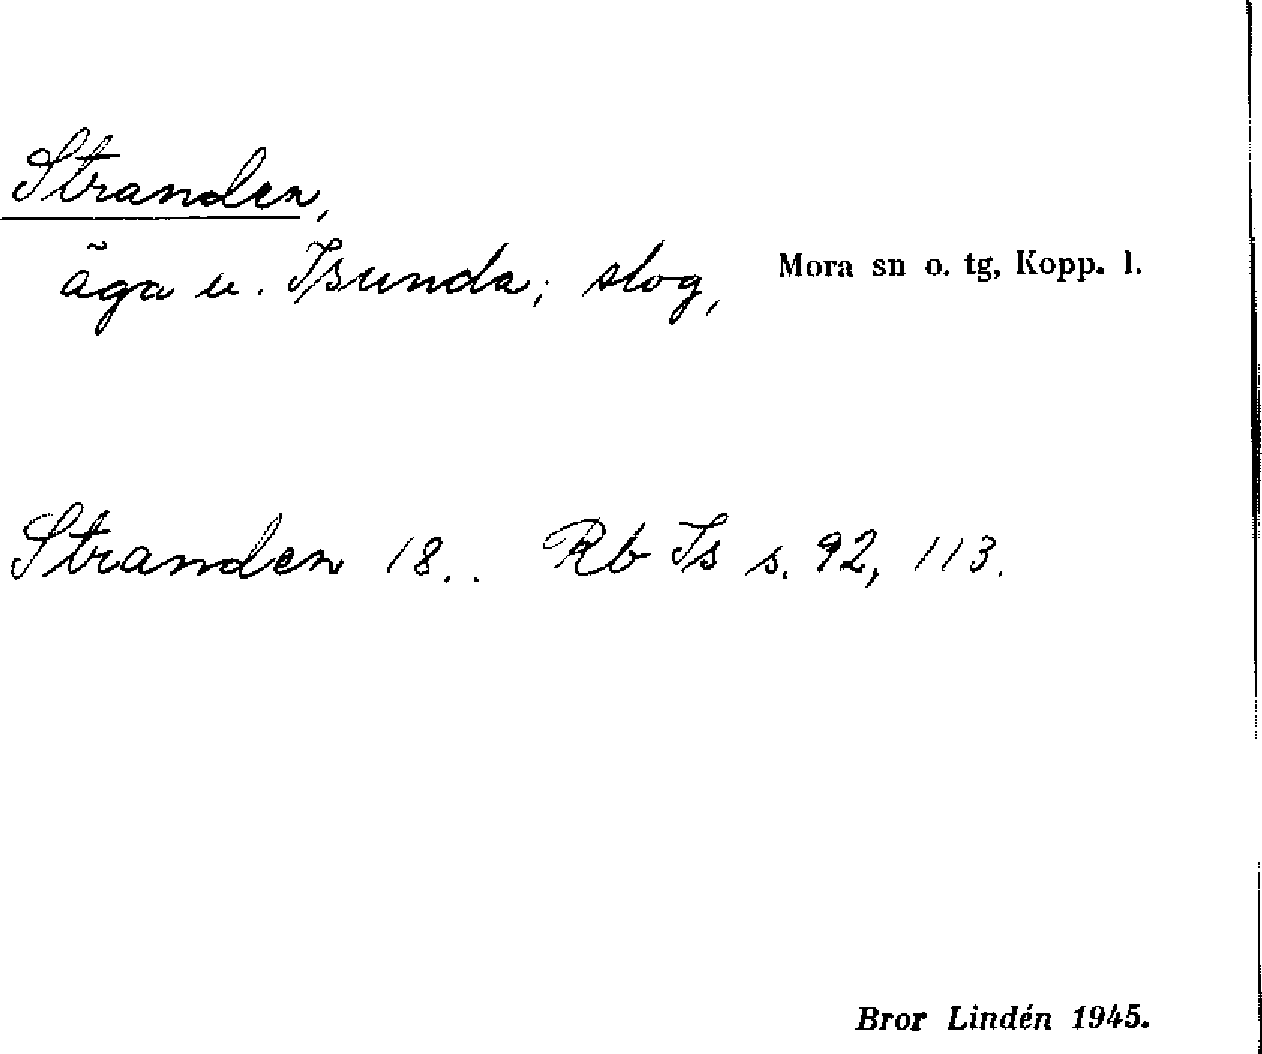 Stranden,
äga u. Isunda; slog,
Mora sn o. tg, Kopp. l.
Stranden 18.. Rb Is s. 92, 113.
Bror Lindén 1945.